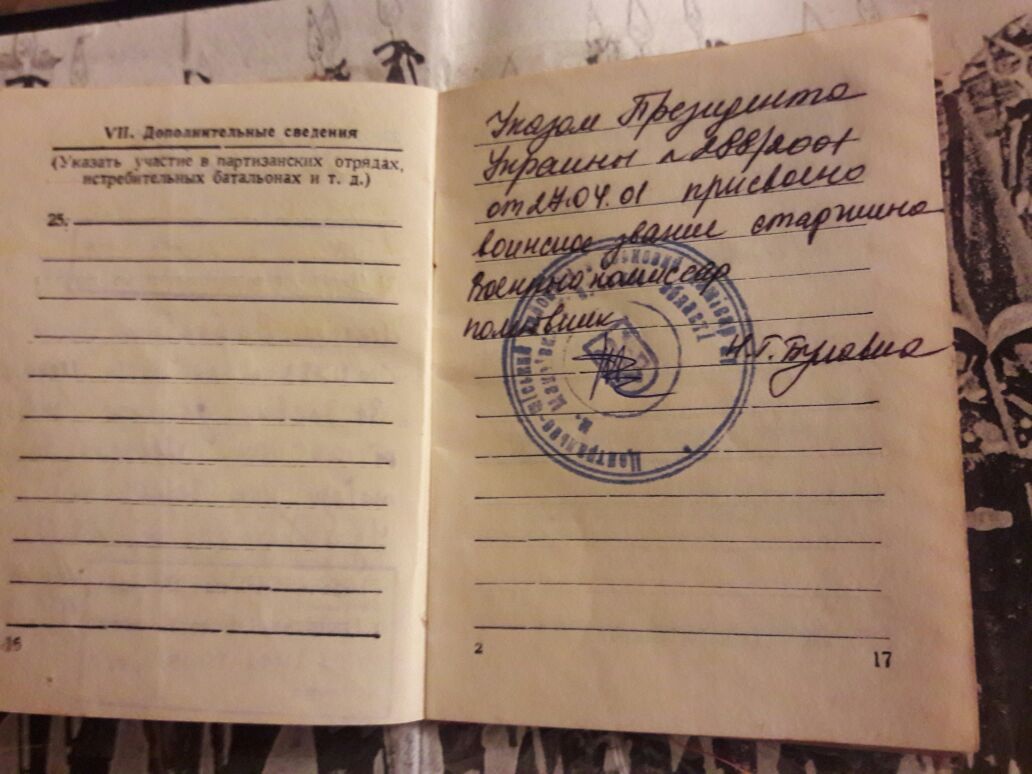 VII. Дополнительные сведения
(Указать участие в партизанских отрядах,
истребительных батальонах и т. д.)
25.
16
Указом Президента
Украины № 288/2001
от 27.04.01 присвоено
воинское звание старшина
Военный комиссар
полковник
Н.Г.Булавка
Центрально-міський
м.
2
17